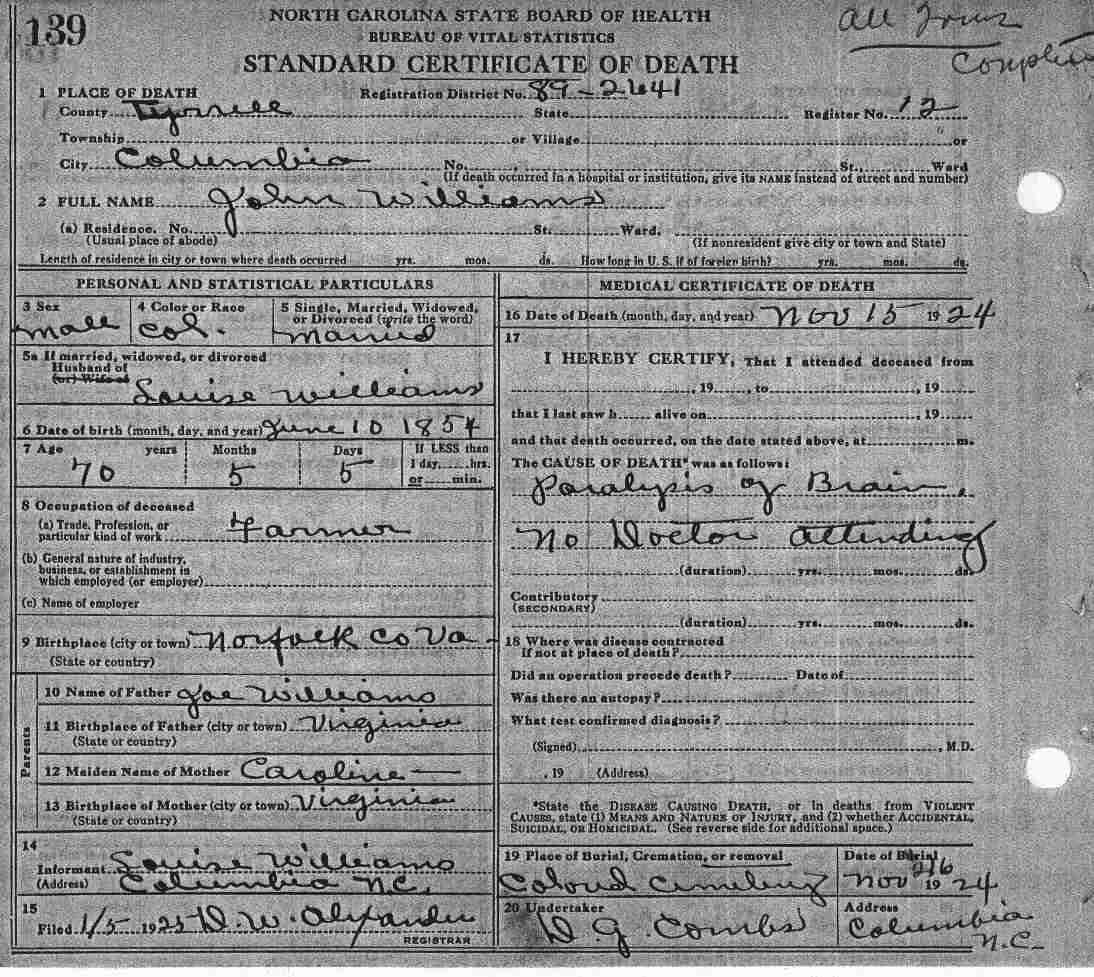 139
NORTH CAROLINA STATE BOARD OF HEALTH
BUREAU OF VITAL STATISTICS
STANDARD CERTIFICATE OF DEATH
All Forms
Complete
1 PLACE OF DEATH Registration District No. 89-2641
County Tyrrell State Register No. 12
Township or Village or
City Columbia No. St., Ward
(If death occurred in a hospital or institution, give its NAME instead of street and number)
2 FULL NAME John Williams
(a) Residence. No. St. Ward.
(Usual place of abode) (If nonresident give city or town and State)
Length of residence in city or town where death occurred yrs. mos. ds. How long in U. S. if of foreign birth? yrs. mos. ds.
PERSONAL AND STATISTICAL PARTICULARS
3 Sex 4 Color or Race 5 Single, Married, Widowed,
or Divorced (write the word)
Male Col. Married
5a If married, widowed, or divorced
Husband of
(or) Wife of
Louise Williams
6 Date of birth (month, day, and year) June 10 1854
7 Age years Months Days If LESS than
1 day, hrs.
or min.
70 5 5
8 Occupation of deceased
(a) Trade, Profession, or
particular kind of work Farmer
(b) General nature of industry,
business, or establishment in
which employed (or employer)
(c) Name of employer
9 Birthplace (city or town) Norfolk Co Va -
(State or country)
Parents
10 Name of Father Joe Williams
11 Birthplace of Father (city or town) Virginia
(State or country)
12 Maiden Name of Mother Caroline —
13 Birthplace of Mother (city or town) Virginia
(State or country)
14
Informant Louise Williams
(Address) Columbia N.C.
15
Filed 1/5 1925 D. W. Alexander
REGISTRAR
MEDICAL CERTIFICATE OF DEATH
16 Date of Death (month, day, and year) Nov 15 1924
17
I HEREBY CERTIFY, That I attended deceased from
, 19 , to , 19
that I last saw h alive on , 19
and that death occurred, on the date stated above, at m.
The CAUSE OF DEATH* was as follows:
Paralysis of Brain,
No Doctor attending
(duration) yrs. mos. ds.
Contributory
(SECONDARY)
(duration) yrs. mos. ds.
18 Where was disease contracted
If not at place of death?
Did an operation precede death? Date of
Was there an autopsy?
What test confirmed diagnosis?
(Signed) , M.D.
, 19 (Address)
*State the DISEASE CAUSING DEATH, or in deaths from VIOLENT
CAUSES, state (1) MEANS AND NATURE OF INJURY, and (2) whether ACCIDENTAL,
SUICIDAL, OR HOMICIDAL. (See reverse side for additional space.)
19 Place of Burial, Cremation, or removal Date of Burial
Colored Cemetery Nov 1924
20 Undertaker Address
D. G. Combs Columbia
N.C-